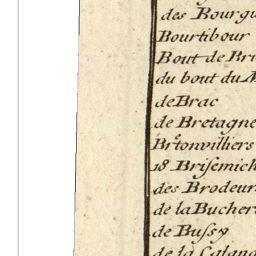 des Bourgu
Bourtibour
Bout de Bri
du bout du M
de Brac
de Bretagne
Brtonvilliers
18 Brisemich
des Brodeur
de la Bucher
de Bussy
de la Caland